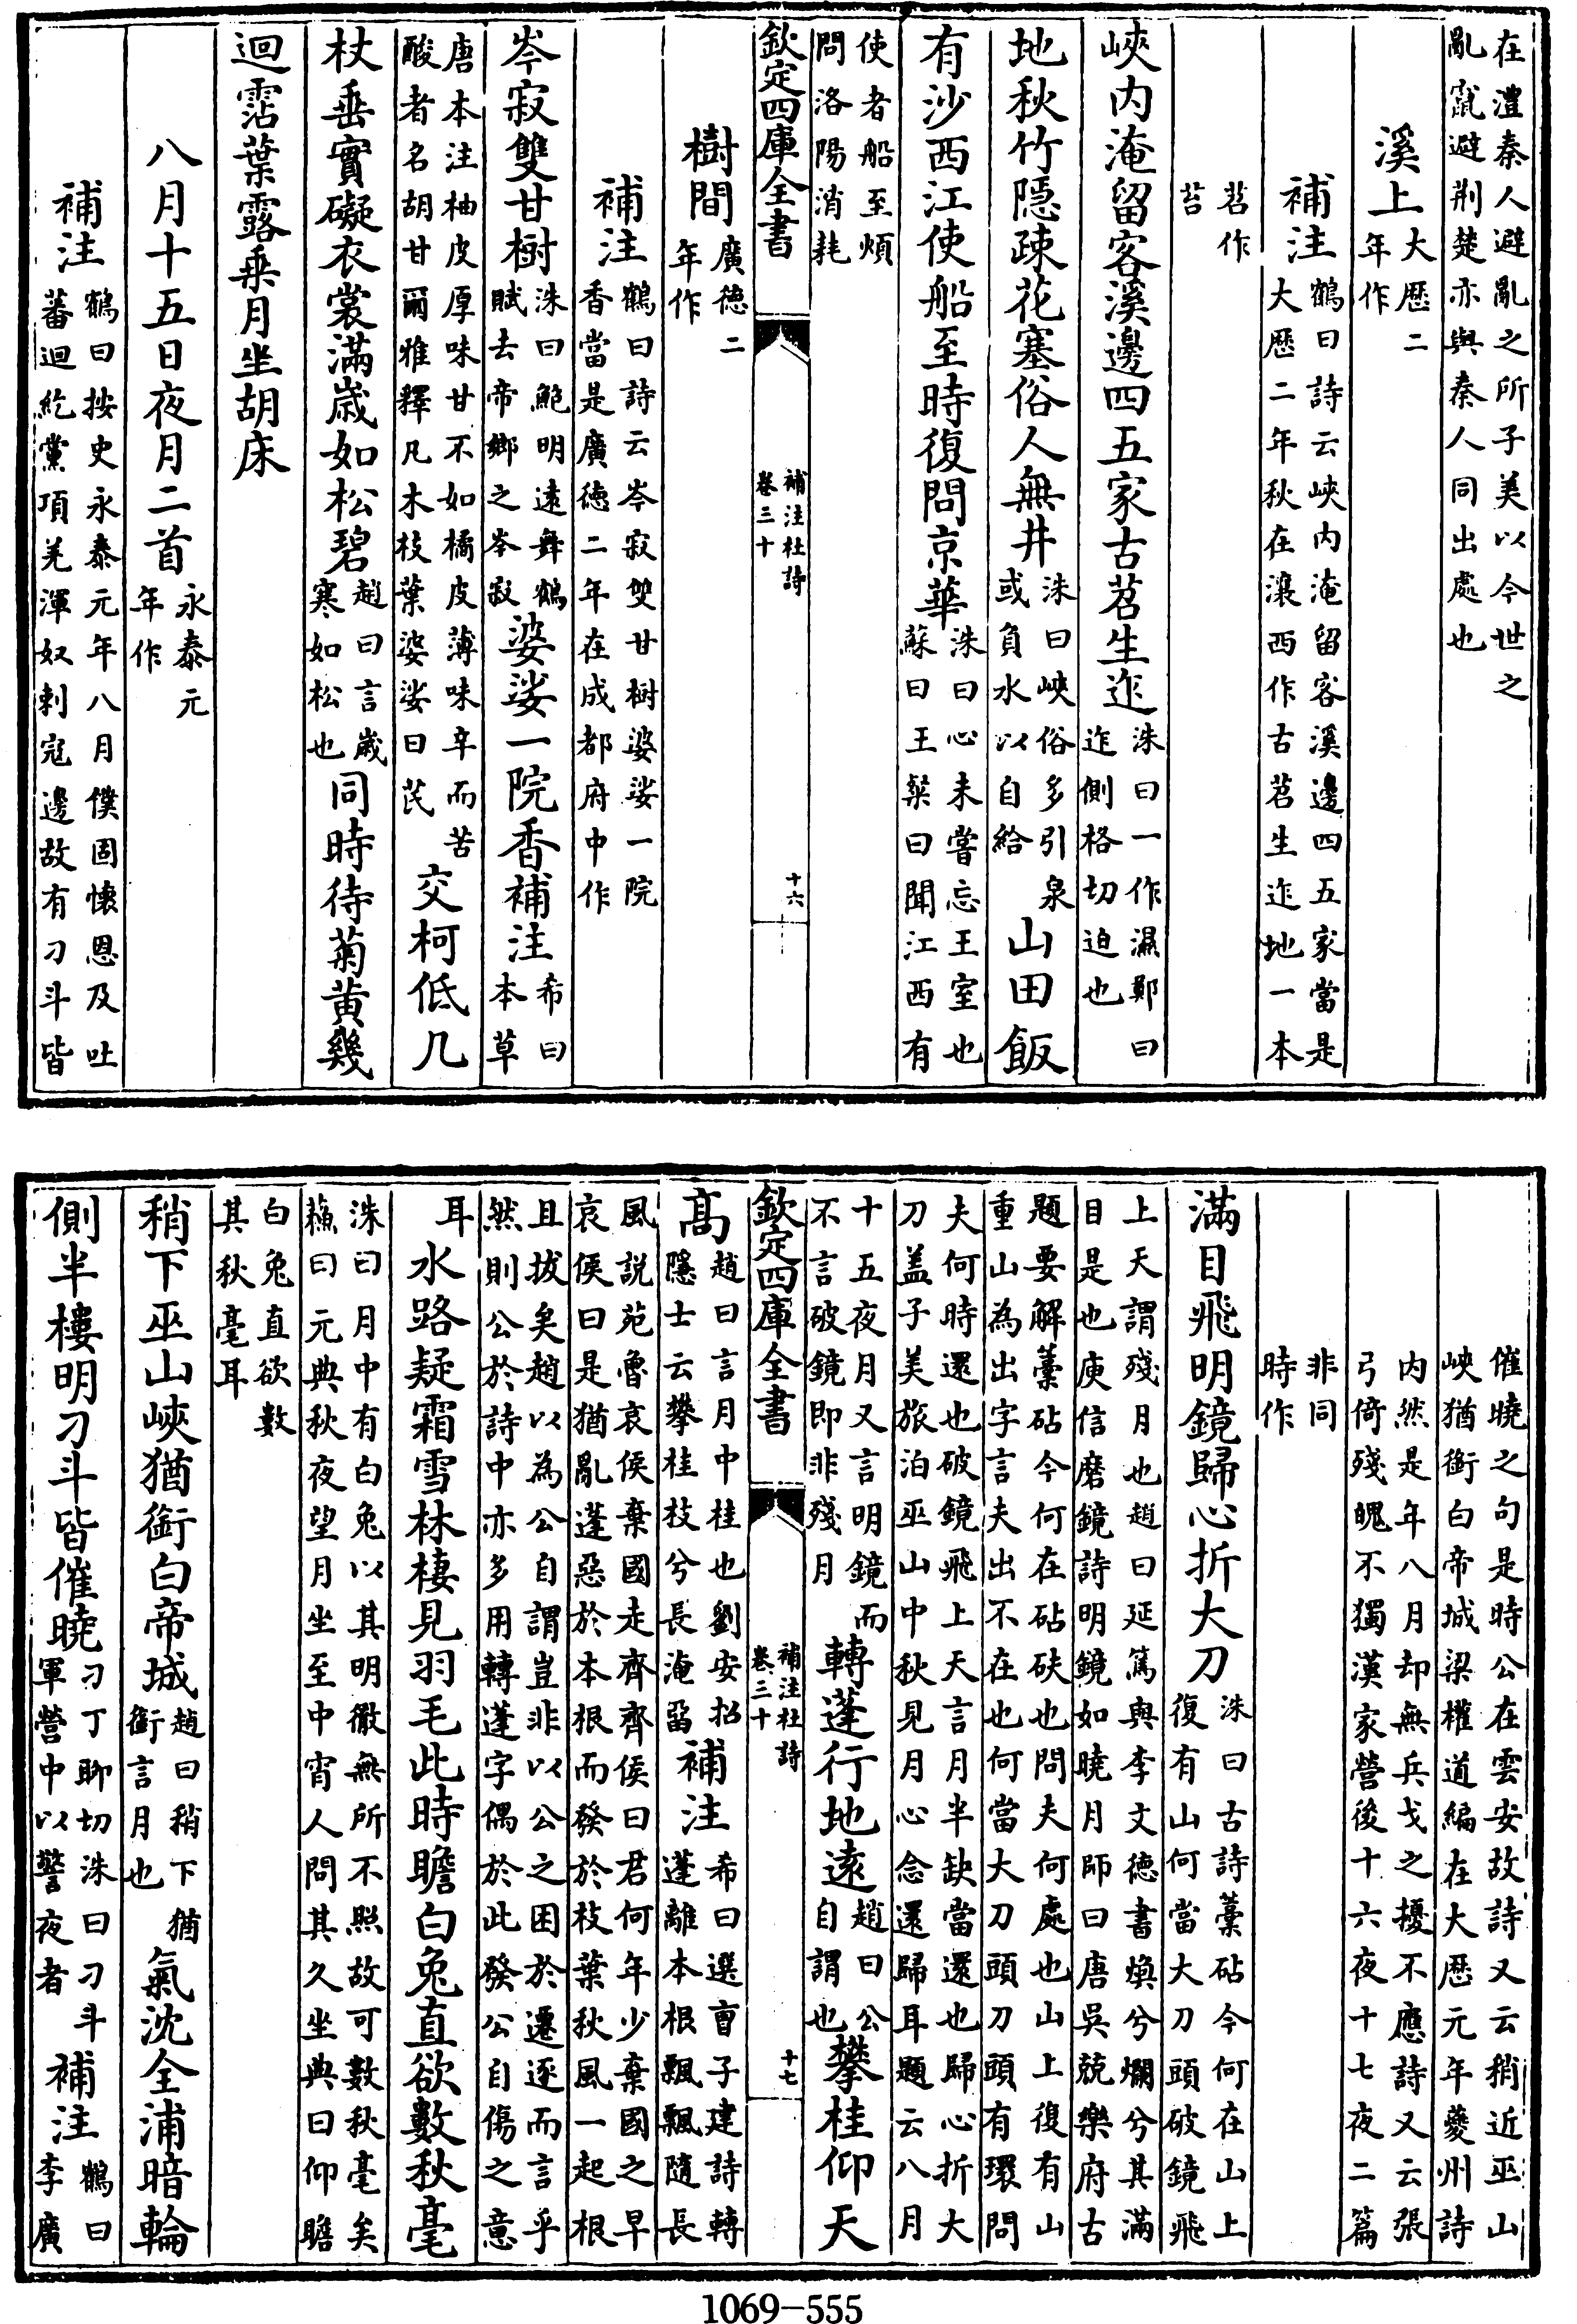 在澧秦人避亂之所子美以今世之
亂竄避荆楚亦與秦人同出處也
溪上大厯二
年作
補注鶴曰詩云峽内淹留客溪邊四五家當是
大厯二年秋在瀼西作古苕生迮地一本
苕作
苔
峽内淹留客溪邊四五家古苕生迮洙曰一作濕鄭曰
迮側格切迫也
地秋竹隱疎花塞俗人無井洙曰峽俗多引泉
或負水以自給山田飯
有沙西江使船至時復問京華洙曰心未嘗忘王室也
蘇曰王粲曰聞江西有
使者船至煩
問洛陽消耗
欽定四庫全書
補注杜詩
卷三十
十六
樹間廣德二
年作
補注鶴曰詩云岑寂雙甘樹婆娑一院
香當是廣德二年在成都府中作
岑寂雙甘樹洙曰鮑明遠舞鶴
賦去帝鄉之岑寂婆娑一院香補注希曰
本草
唐本注柚皮厚味甘不如橘皮薄味辛而苦
酸者名胡甘爾雅釋凡木枝葉婆娑曰茂交柯低几
杖垂實礙衣裳滿歲如松碧趙曰言歲
寒如松也同時待菊黄幾
迴霑葉露乗月坐胡床
八月十五日夜月二首永泰元
年作
補注鶴曰按史永泰元年八月僕固懐恩及吐
蕃迴紇黨項羌渾奴剌宼邊故有刁斗皆
催曉之句是時公在雲安故詩又云稍近巫山
峽猶銜白帝城梁權道編在大厯元年夔州詩
内然是年八月却無兵戈之擾不應詩又云張
弓倚殘魄不獨漢家營後十六夜十七夜二篇
非同
時作
滿目飛明鏡歸心折大刀洙曰古詩藁砧今何在山上
復有山何當大刀頭破鏡飛
上天謂殘月也趙曰延篤與李文德書煥兮爛兮其滿
目是也庾信磨鏡詩明鏡如曉月師曰唐吳兢樂府古
題要解藁砧今何在砧砆也問夫何處也山上復有山
重山為出字言夫出不在也何當大刀頭刀頭有環問
夫何時還也破鏡飛上天言月半缺當還也歸心折大
刀盖子美旅泊巫山中秋見月心念還歸耳題云八月
十五夜月又言明鏡而
不言破鏡即非殘月轉蓬行地遠趙曰公
自謂也攀桂仰天
欽定四庫全書
補注杜詩
卷三十
十七
髙趙曰言月中桂也劉安招
隱士云攀桂枝兮長淹留補注希曰選曹子建詩轉
蓬離本根飄飄隨長
風説苑魯哀侯棄國走齊齊侯曰君何年少棄國之早
哀侯曰是猶亂蓬惡於本根而發於枝葉秋風一起根
且拔矣趙以為公自謂豈非以公之困於遷逐而言乎
然則公於詩中亦多用轉蓬字偶於此發公自傷之意
耳水路疑霜雪林棲見羽毛此時瞻白兔直欲數秋毫
洙曰月中有白兔以其明徹無所不照故可數秋毫矣
蘓曰元典秋夜望月坐至中宵人問其久坐典曰仰瞻
白兔直欲數
其秋毫耳
稍下巫山峽猶銜白帝城趙曰稍下猶
銜言月也氣沈全浦暗輪
側半樓明刁斗皆催曉刁丁聊切洙曰刁斗
軍營中以警夜者補注鶴曰
李廣
1069-555